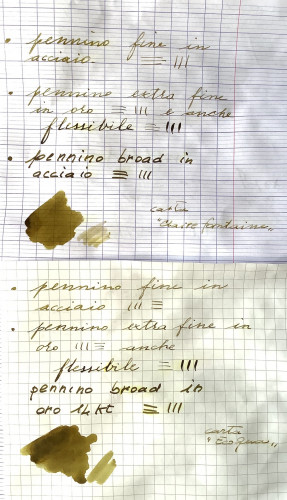 • pennino fine in
acciaio. = III
• pennino extra fine
in oro ≡ III e anche
flessibile = III
• pennino broad in
acciaio ≡ III
carta
"Claire fontaine„
• pennino fine in
acciaio III ≡
• pennino extra fine in
oro III = anche
flessibile = III
pennino broad in
oro 14kt = III
carta